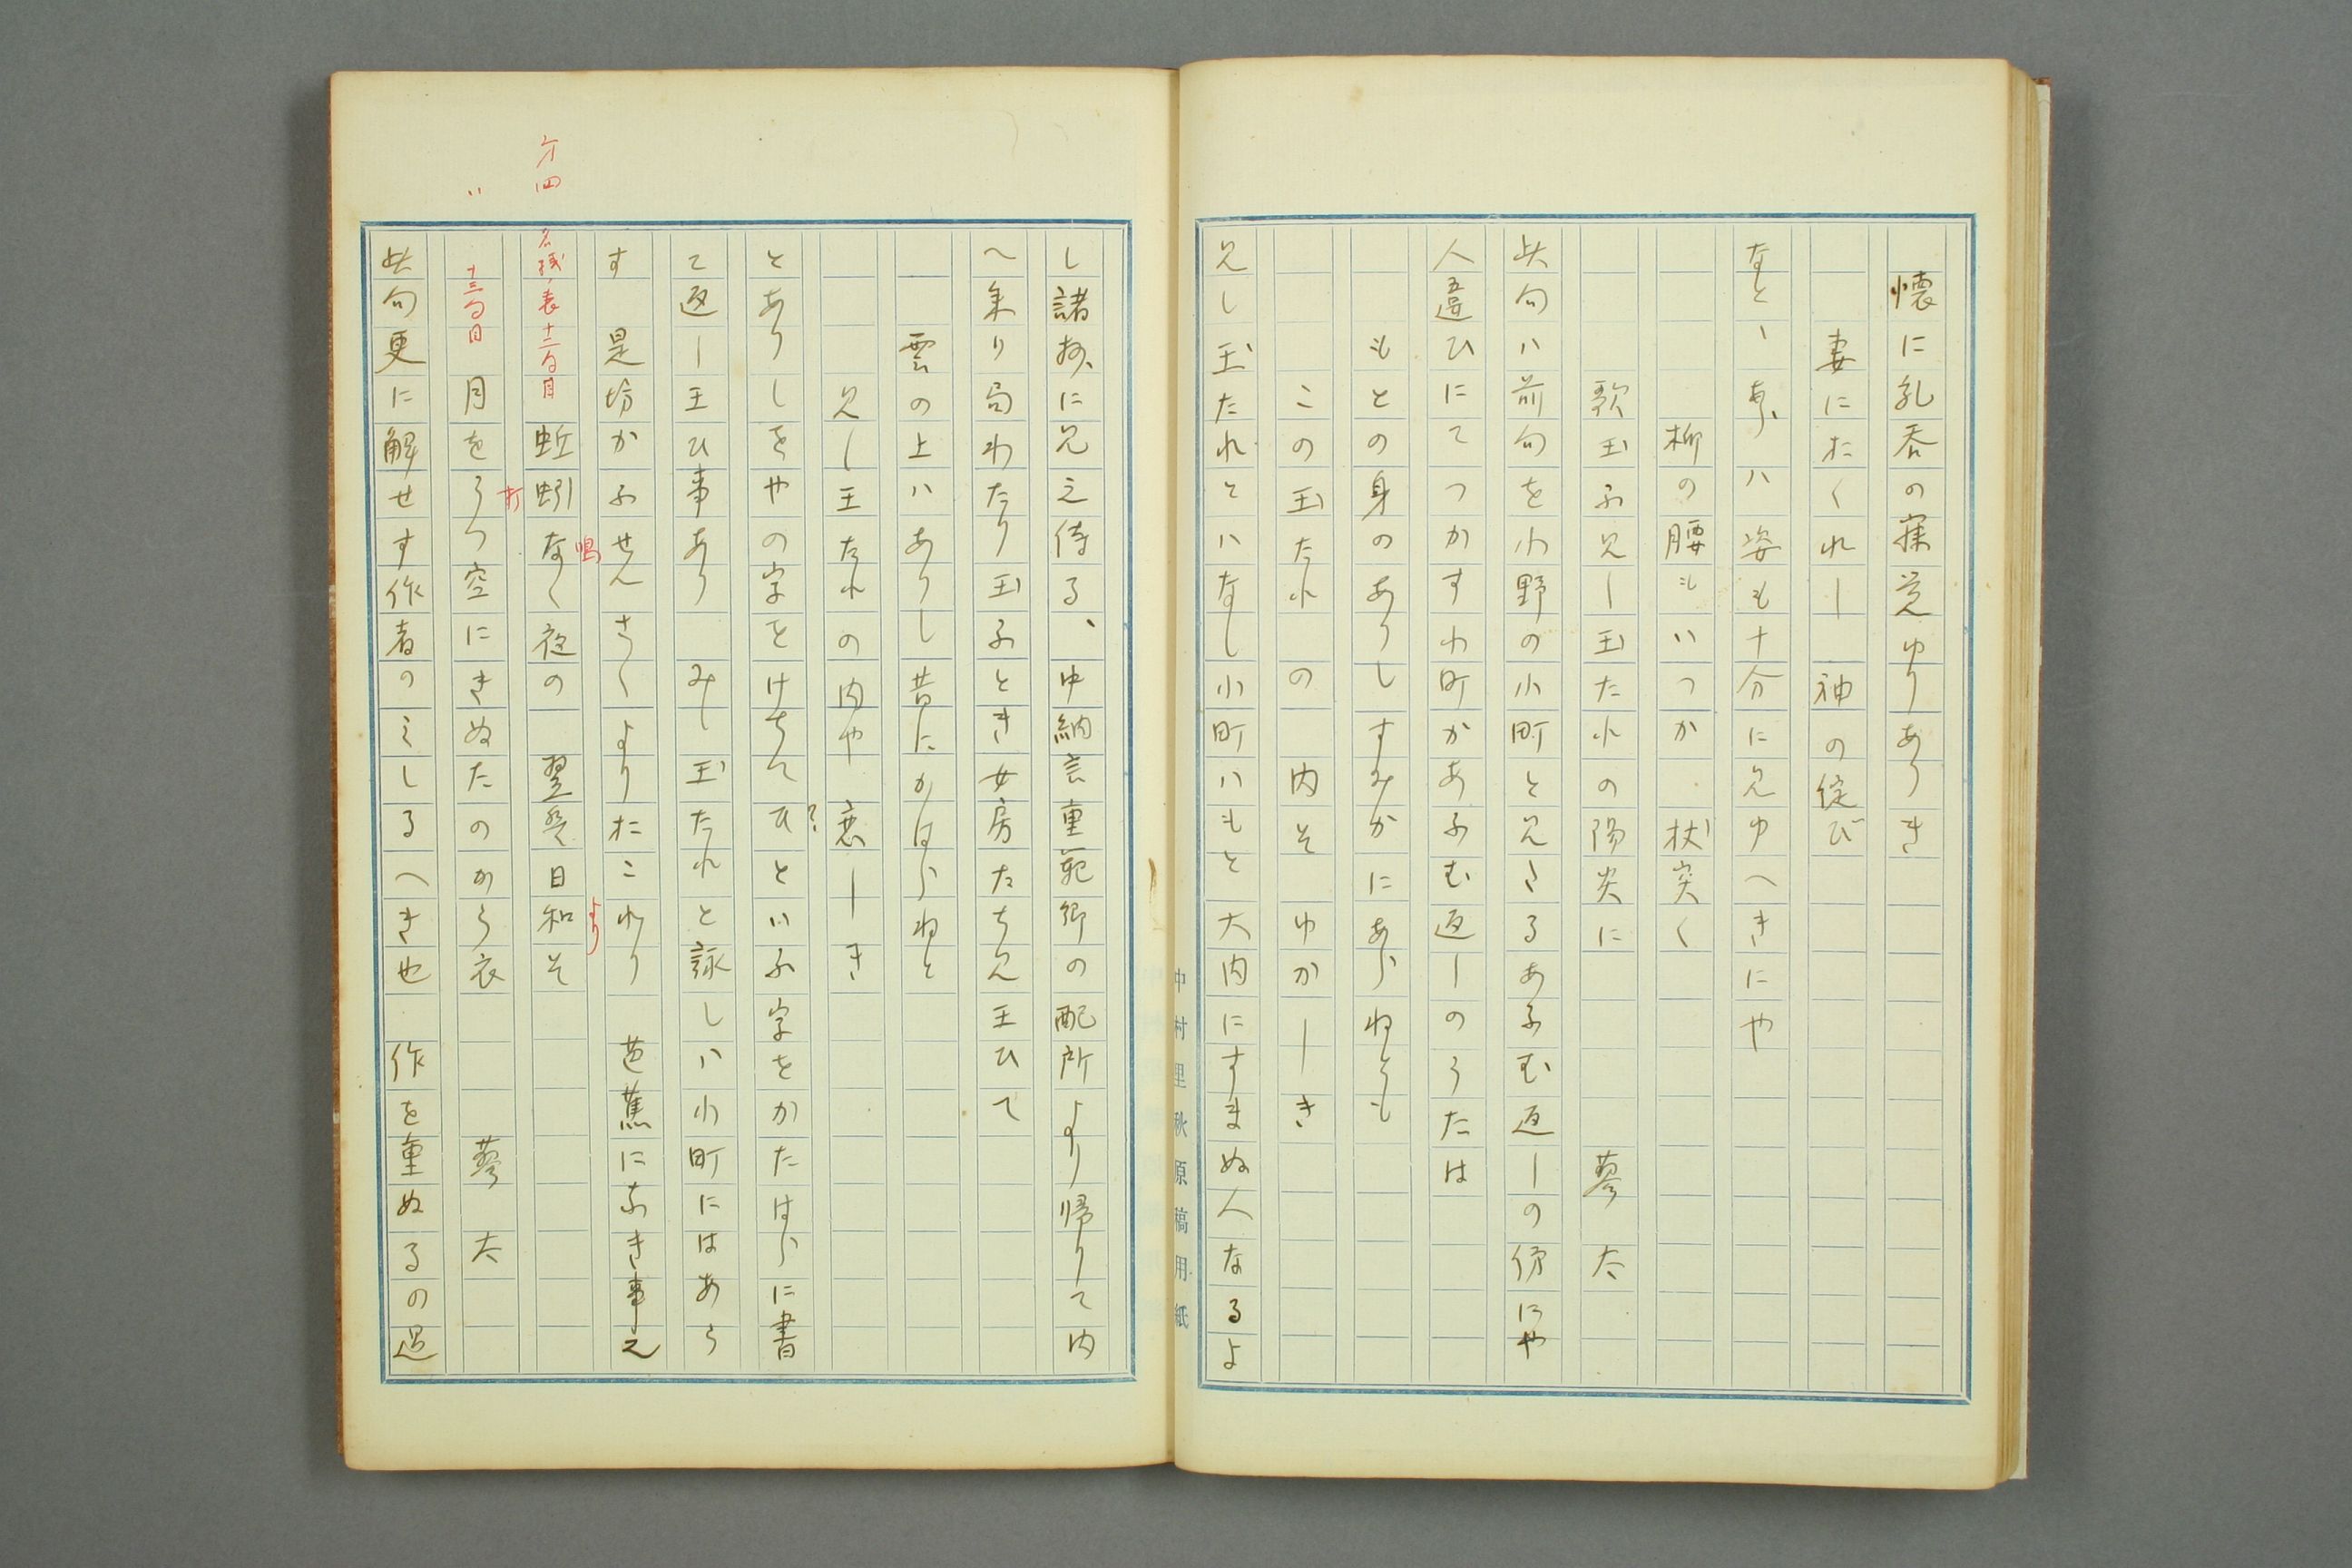 懐に乳呑の寐覚ゆりありき
妻にたくれし神の綻び
なとゝあらハ姿も十分に見ゆへきにや
柳の腰もいつか杖突く
歌玉ふ見し玉たれの陽炎に 蓼太
此句ハ前句を小野の小町と見さるあふむ返しの俤にや
人違ひにてつかす小町かあふむ返しのうたは
もとの身のありしすみかにあらねとも
この玉たれの内そゆかしき
見し玉たれとハなし小町ハもと大内にすまぬ人なるよ
中村里秋原稿用紙
し諸抄に見え侍る、中納言重範卿の配所より帰りて内
へ来り局わたり玉ふとき女房たち見玉ひて
雲の上ハありし昔にかはらねと
見し玉たれの内や恋しき
とありしをやの字をけちてひといふ字をかたはらに書
?
て返し玉ひ事あり みし玉たれと詠しハ小町にはあら
す 是坊かふせんさくよりおこれり 芭蕉になき事え
才四 名残ノ表十二句目 蚯蚓なく夜の 翌登日和そ
鳴
より
〃 十三句目 月をうつ空にきぬたのから衣 蓼太
打
此句更に解せす作者のミしるへき也 作を重ぬるの過